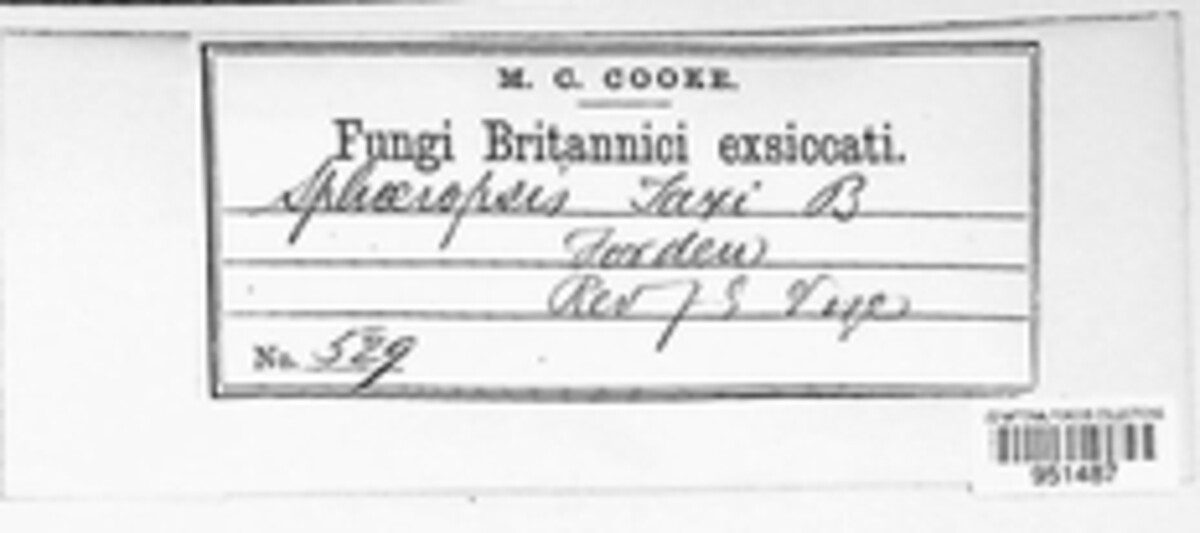 M. C. COOKE.
Fungi Britannici exsiccati.
Sphæropsis Taxi B
Forden
Rev J E Vize
No. 529
951487